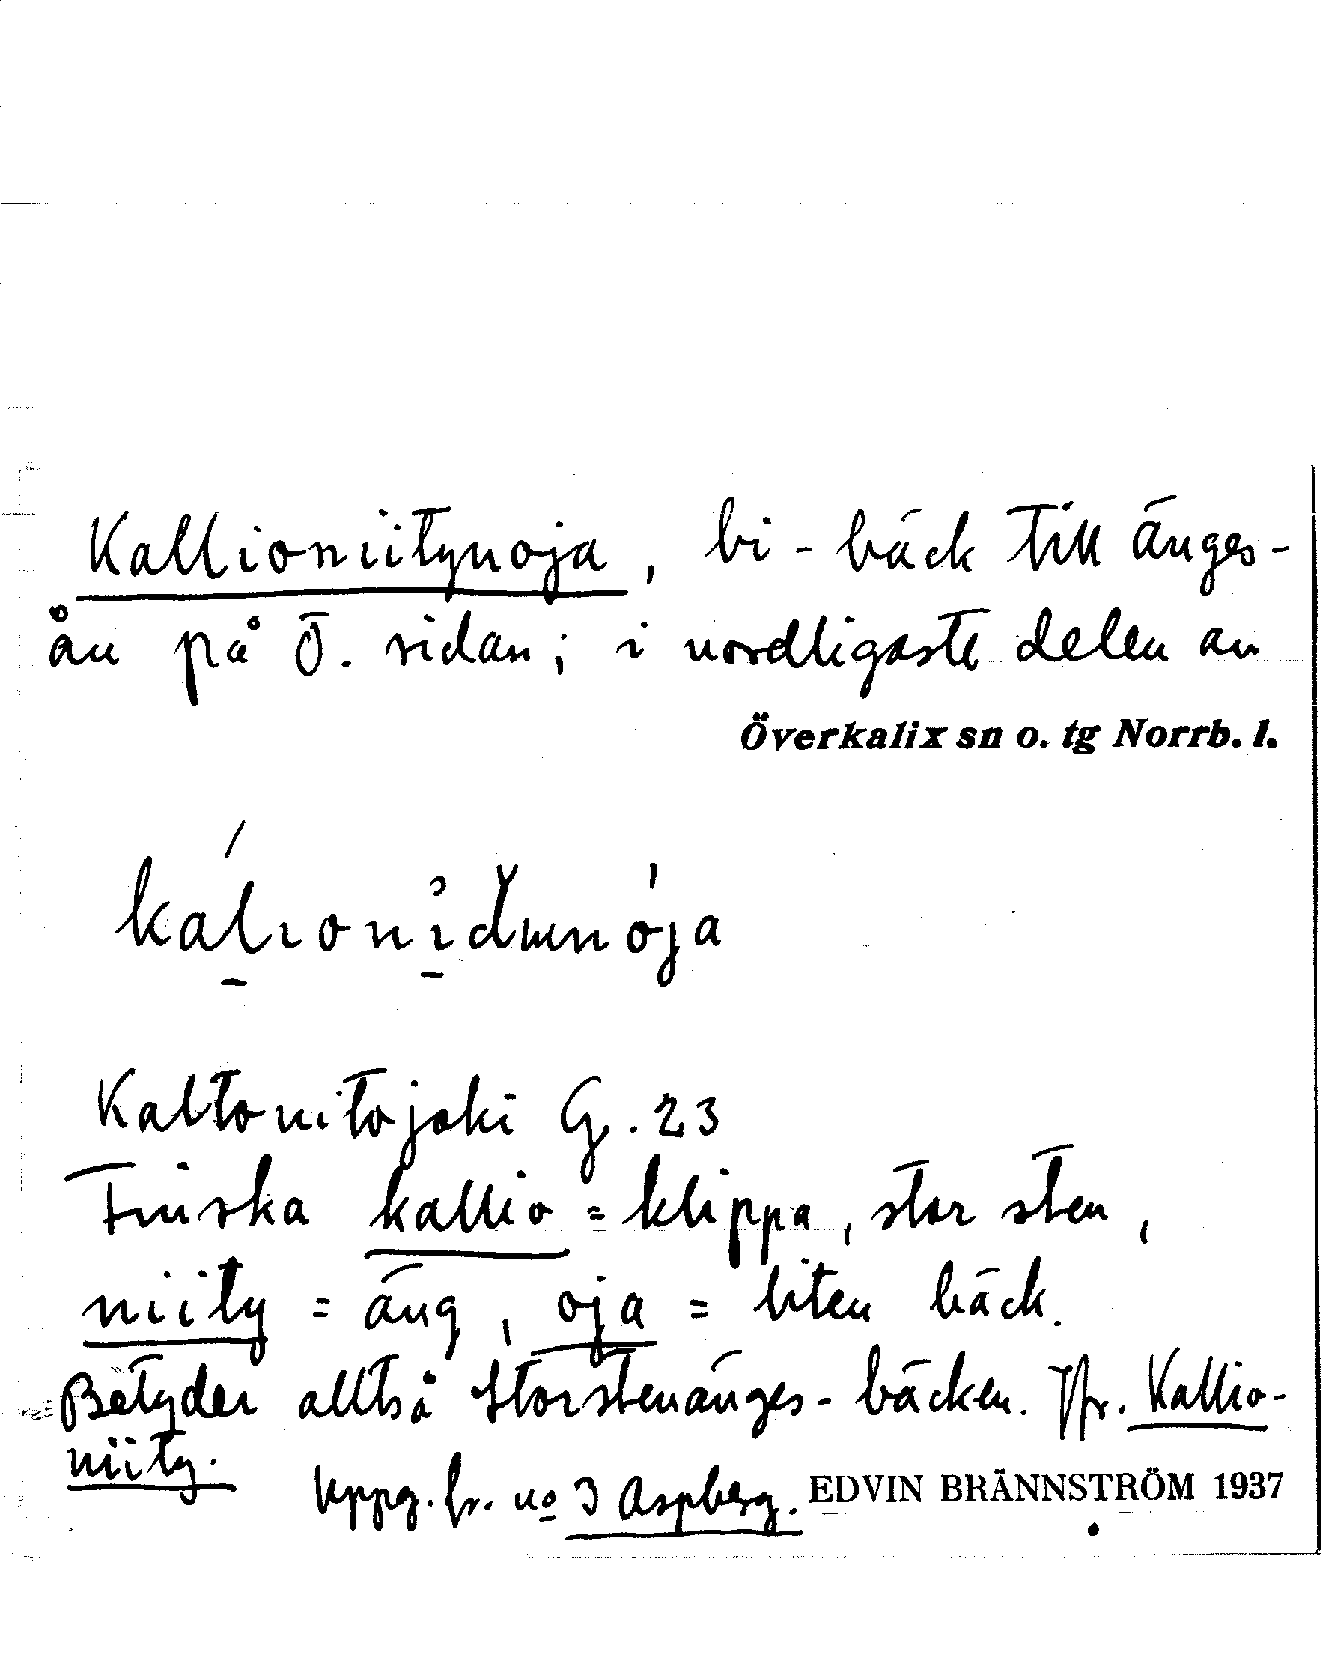 Kallioniitynoja, bi-bäck till Änges-
ån på Ö. sidan; i nordligaste delen av
Överkalix sn o. tg Norrb. l.
Kaltonitojoki G. 23
Finska kallio = klippa, stor sten,
niity = äng, oja = liten bäck.
Betyder alltså Storstenänges-bäcken. Jfr. Kallio-
niity.
Uppg. fr. no 3 Aspberg. EDVIN BRÄNNSTRÖM 1937